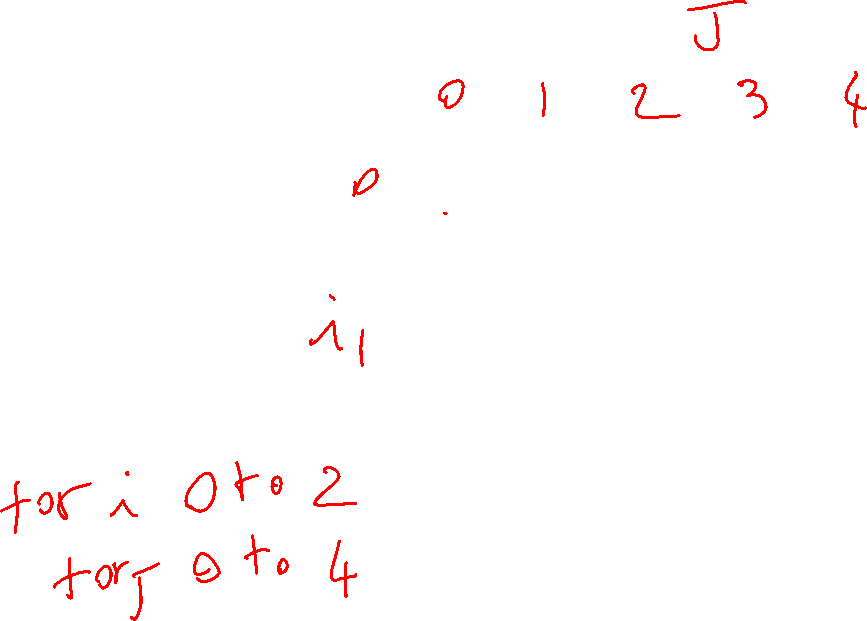 J
0 1 2 3 4
0
i 1
for i 0 to 2
for J 0 to 4